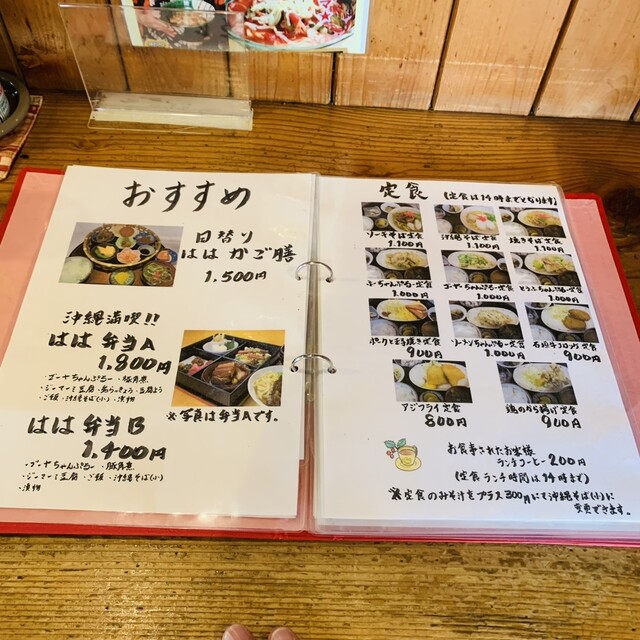 おすすめ
日替り
はは かご膳
1.500円
沖縄満喫!!
はは 弁当A
1.800円
・ゴーヤちゃんぷるー・豚角煮
・ジーマーミ豆腐・島らっきょう・豆腐よう
・ご飯・沖縄そば(小)・漬物
※写真は弁当Aです。
はは 弁当B
1.400円
・ゴーヤちゃんぷるー・豚角煮
・ジーマーミ豆腐・ご飯・沖縄そば(小)
・漬物
定食 (定食は14時までとなります)
ソーキそば定食
1.100円
沖縄そば定食
1.100円
焼きそば定食
1.100円
ふーちゃんぷるー定食
1.000円
ゴーヤーちゃんぷるー定食
1.000円
とうふちゃんぷるー定食
1.000円
ポークと玉子焼き定食
900円
ソーメンちゃんぷるー定食
1.000円
石垣牛コロッケ定食
900円
アジフライ定食
800円
鶏のから揚げ定食
900円
お食事されたお客様
ランチコーヒー200円
(定食ランチ時間は14時まで)
※定食のみそ汁をプラス300円にて沖縄そば(小)に
変更できます。